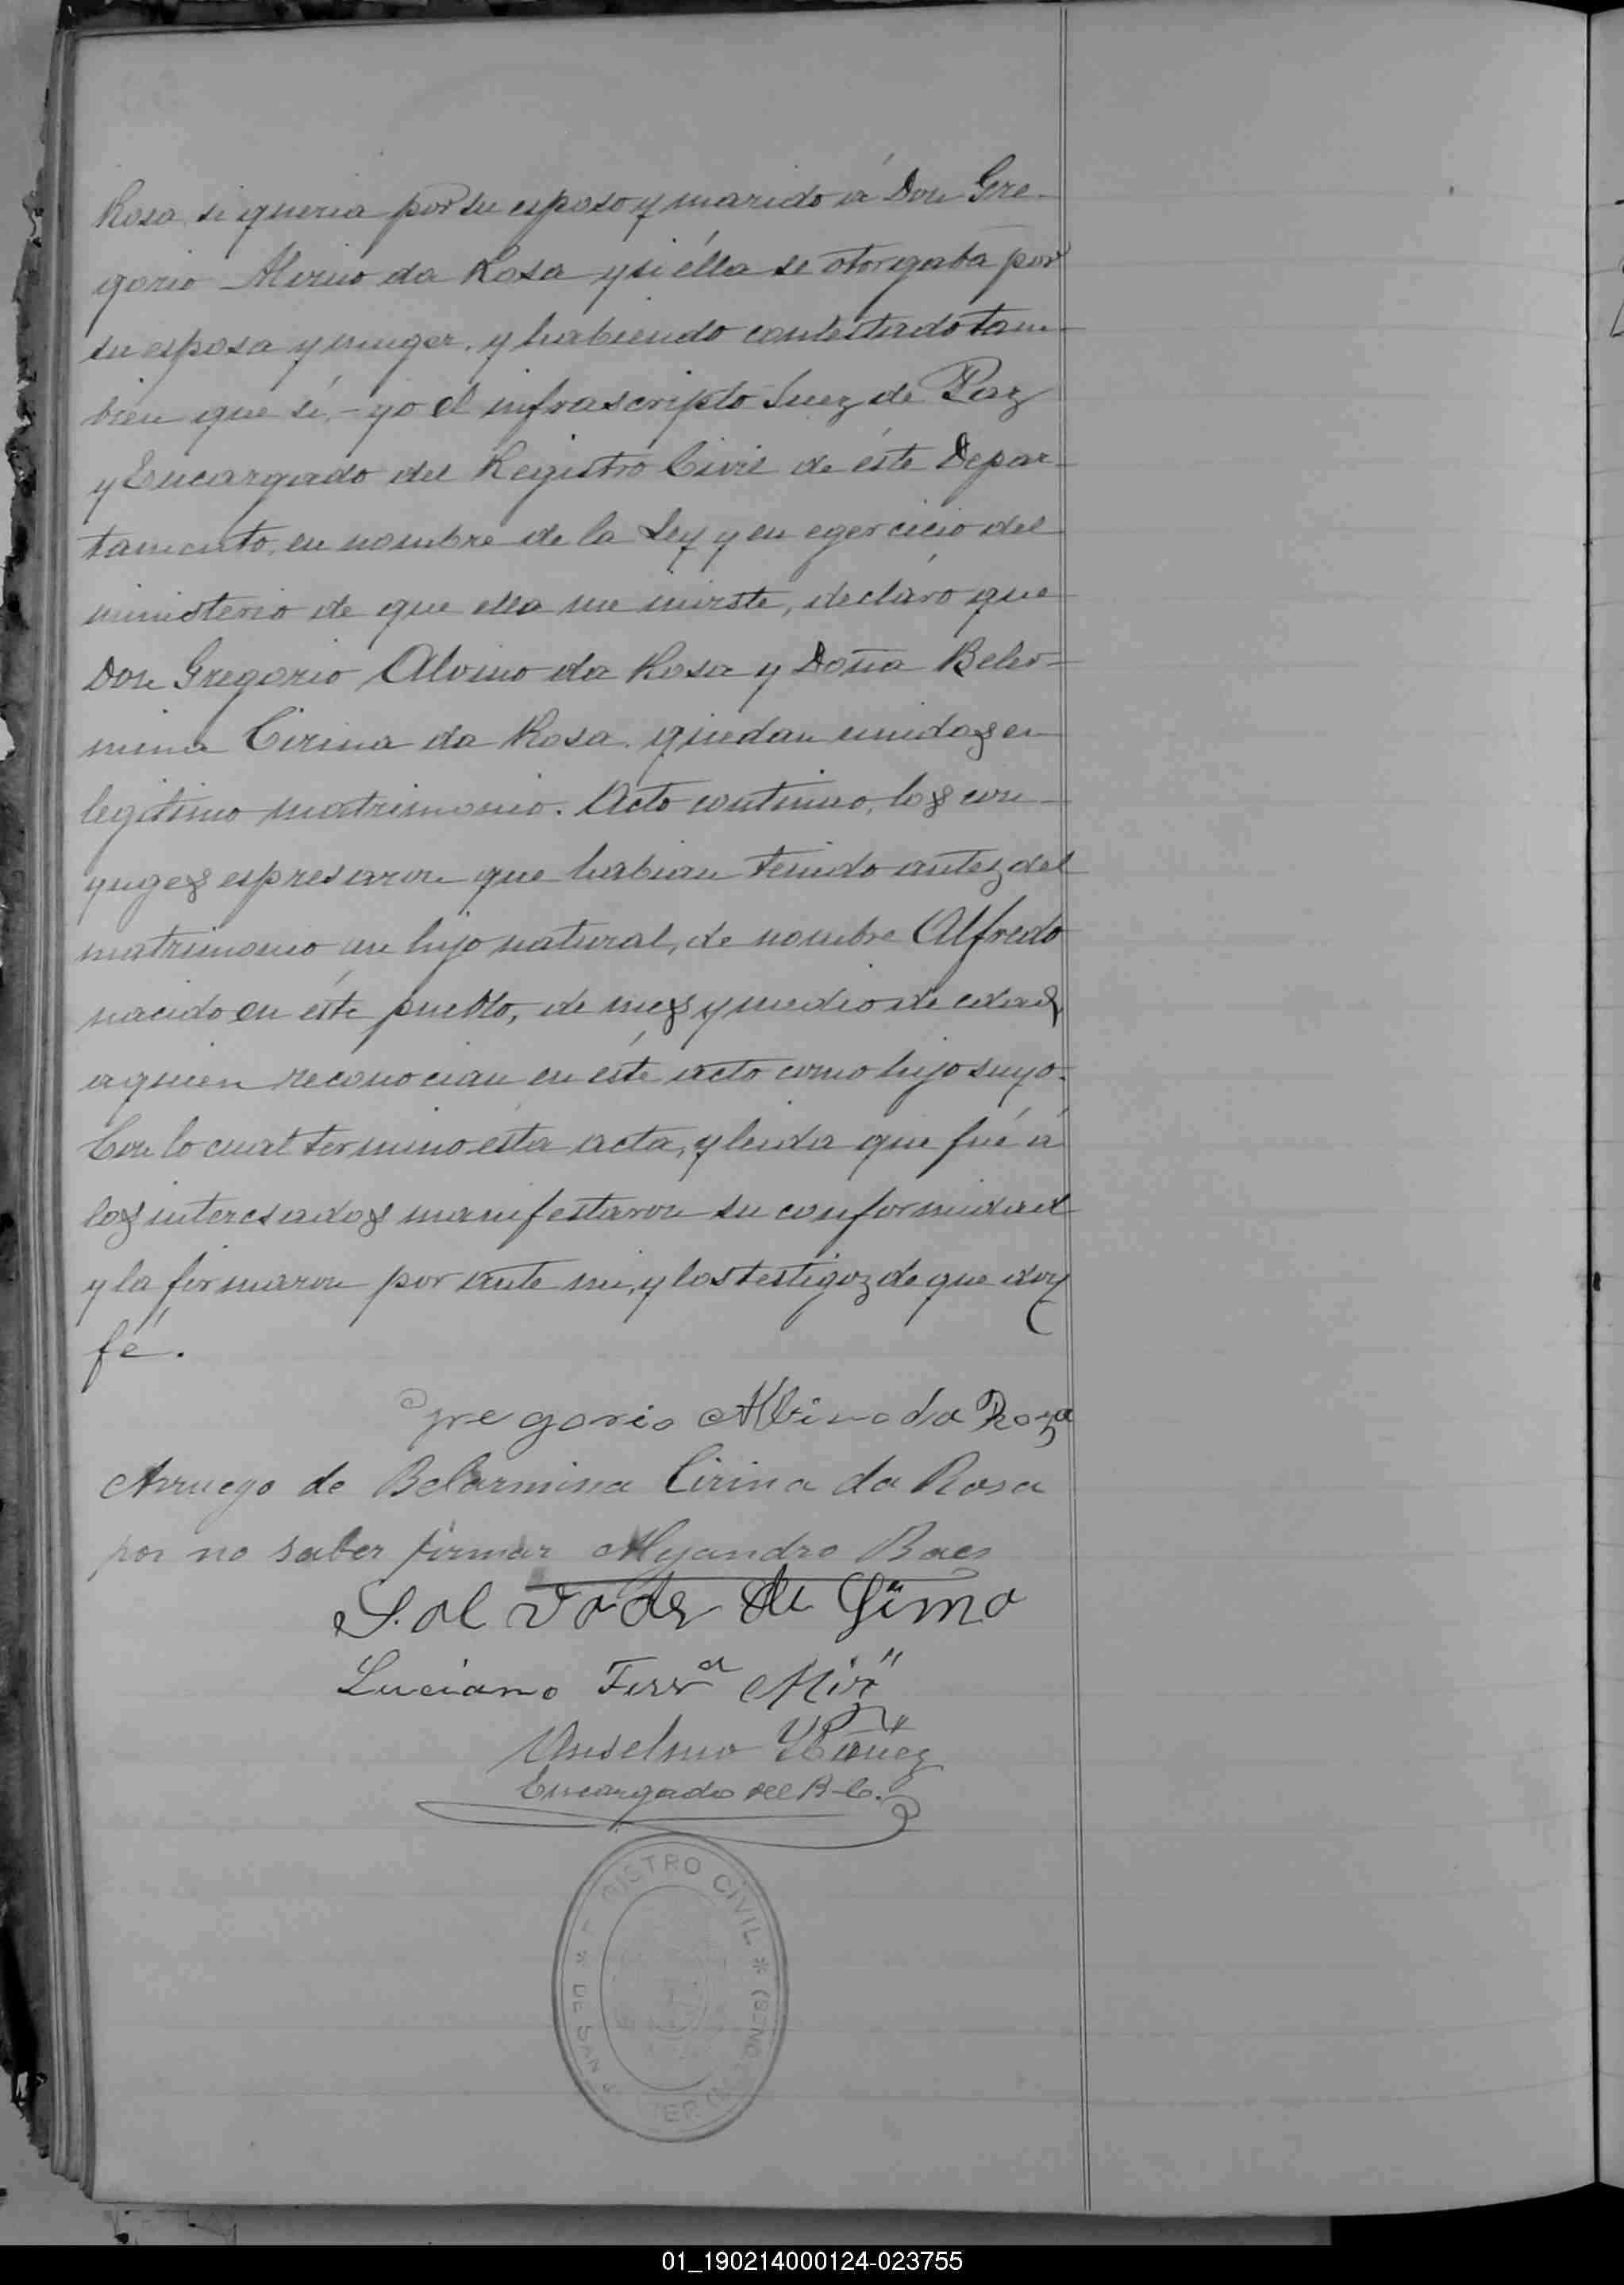 Rosa si queria por su esposo y marido á Don Gre-
gorio Alvino da Rosa y si élla se otorgaba por
su esposa y muger, y habiendo contestado tam-
bien que sí, - yo el infrascripto Juez de Paz
y Encargado del Registro Civil de éste Depar-
tamento, en nombre de la Ley y en egercicio del
ministerio de que ella me inviste, decláro que
Don Gregorio Alvino da Rosa y Doña Beler-
mina Cirina da Rosa quedan unidos en
legitimo matrimonio. Acto continuo, los con-
yuges espresaron que habian tenido antes del
matrimonio un hijo natural, de nombre Alfredo
nacido en éste pueblo, de mes y medio de edad,
a quien reconocian en éste acto como hijo suyo.
Con lo cual termino esta acta, y leida que fué á
los interesados manifestaron su conformidad
y la firmaron por ante mi, y los testigos de que doy
fé.
Gregorio Albino da Roza
Arruego de Belarmina Cirina da Rosa
por no saber firmar Alejandro Baes
Salvador de Gimo
Luciano Ferra Mir
Anselmo Ybañez
Encargado del R-C.
REGISTRO CIVIL * (SENO
* DE SAN JAVIER
01_190214000124-023755